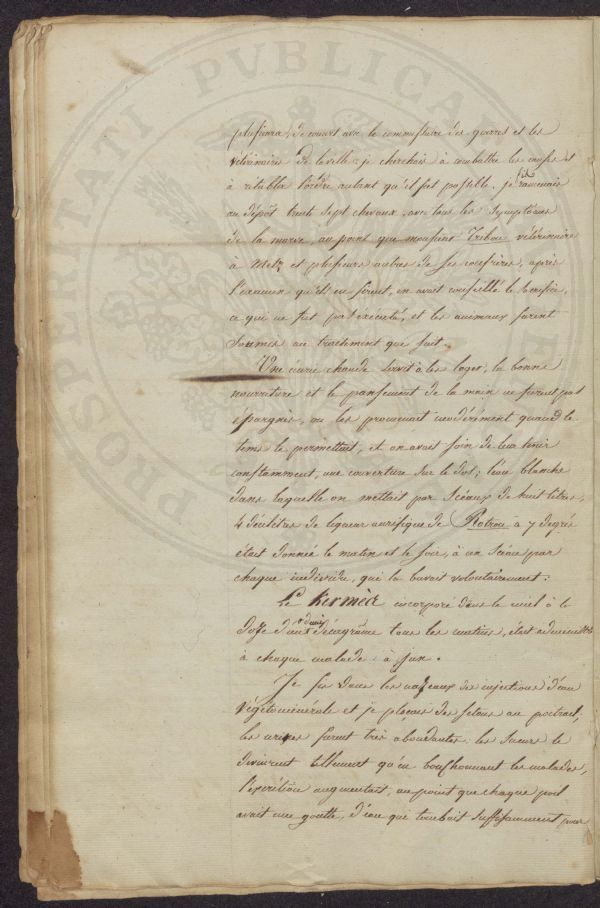 plusieurs, de concert avec le commissaire des guerres et les
vétérinaires de la ville, je cherchois à combattre les causes et
à rétablir l'ordre autant qu'il fut possible. je fis ramenais
au dépôt trente sept chevaux, avec tous les symptômes
de la morve, au point que monsieur Tribou vétérinaire
à Metz et plusieurs autres de ses confrères, après
l'examen qu'ils en firent, en avait conseillé le sacrifice,
ce qui ne fut pas exécuté, et les animaux furent
soumis au traitement qui suit.
Une écurie chaude servit à les loger, la bonne
nourriture et le pansement de la main ne furent pas
épargnés, on les promenait modérément quand le
tems le permettait, et on avait soin de leur tenir
constamment, une couverture sur le dos; l'eau blanche
dans laquelle on mettait par sceaux de huit litres,
4 décilitres de liqueur aurifique de Rotrou à 7 degrés
était donnée le matin et le soir, à un sceau par
chaque individu, qui la buvait volontairement.
Le Kermès incorporé dans le miel à la
doze d'un décagrame tous les matins, était administré
à chaque malade à jeun.
Je fis dans les nazeaux des injections d'eau
végétominérale et je plaçais des setons au poitrail,
les urines furent très abondantes les sueurs le
devinrent tellement qu'en bouchonnant les malades,
l'excrétion augmentait, au point que chaque poil
avait une goutte, d'eau qui tombait suffisamment pour
PROSPERITATI PVBLICAE